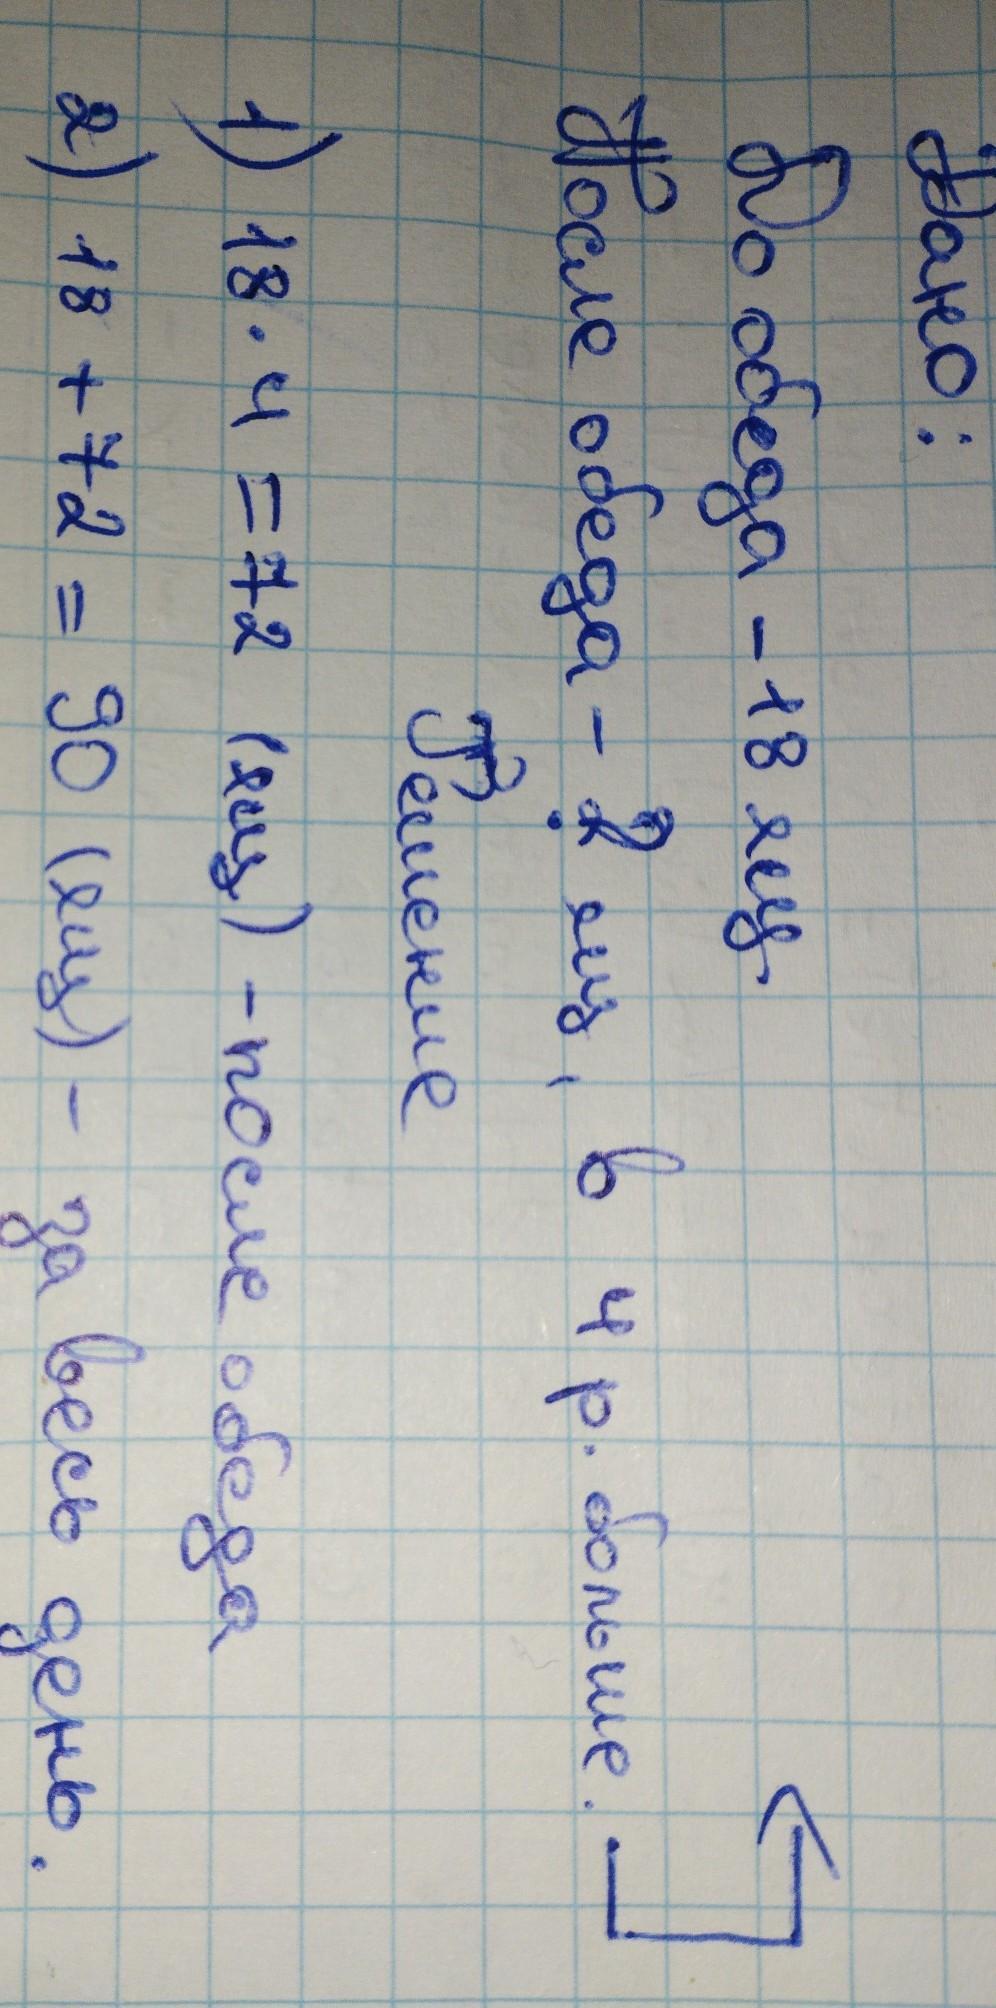 Дано:
До обеда - 18 ящ
После обеда - ? ящ, в 4 р. больше.
Решение
1) 18 · 4 = 72 (ящ) - после обеда
2) 18 + 72 = 90 (ящ) - за весь день.